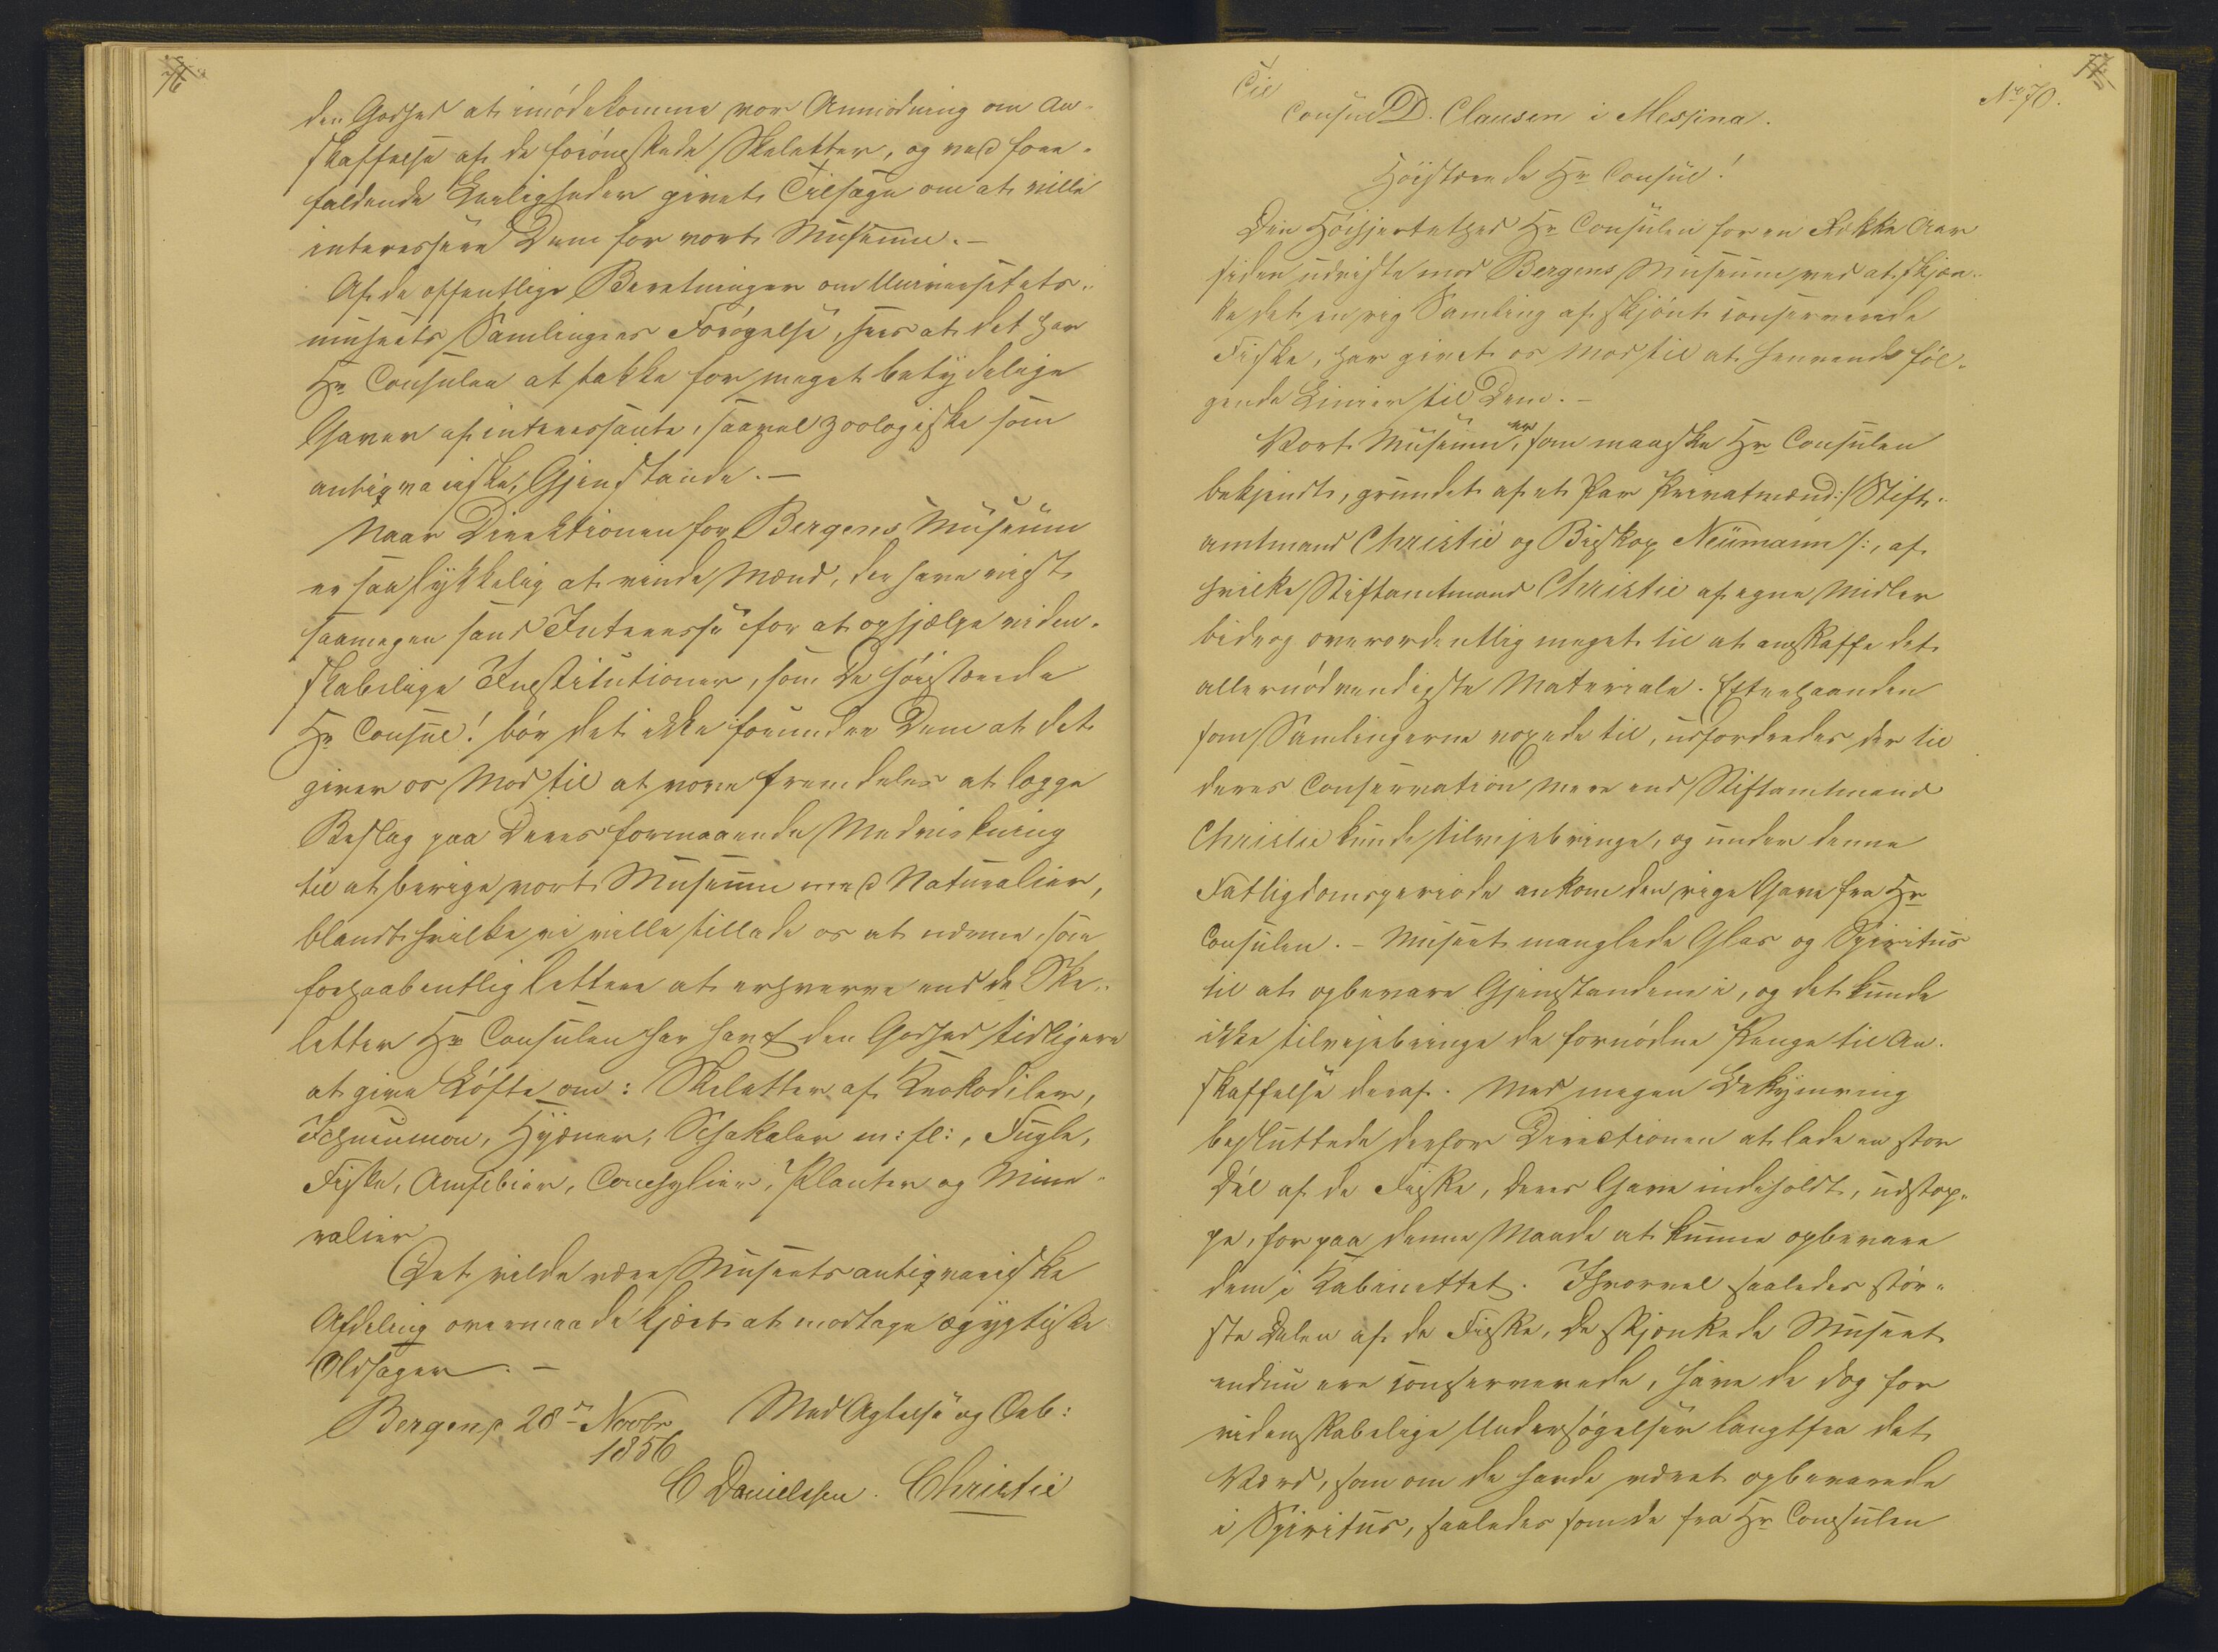 76
den Godhed at imödekomme vor Anmodning om An-
skaffelse af de forönskede Skeletter, og ved fore-
faldende Leiligheder givet Tilsagn om at ville
interessere Dem for vort Museum. —
Af de offentlige Beretninger om Universitets-
museets Samlingers Forögelse, sees at det har
Hr Consulen at takke for meget betydelige
Gaver af interessante, saavel zoologiske som
antiqvariske, Gjenstande. —
Naar Direktionen for Bergens Museum
er saa lykkelig at vinde Mænd, der have viist
saamegen sand Interesse for at ophjælpe viden-
skabelige Institutioner, som De höistærede
Hr Consul! bör det ikke forundre Dem at det
giver os Mod til at vove fremdeles at lægge
Beslag paa Deres formaaende Medvirkning
til at berige vort Museum med Naturalier,
blandt hvilke vi ville tillade os at nævne, som
forhaabentlig lettere at erhverve end de Ske-
letter Hr Consulen har havt den Godhed tidligere
at give Löfte om: Skeletter af Krokodiler,
Ichneumon, Hyæner, Schakaler m: fl:, Fugle,
Fiske, Amfibier, Conchylier, Planter og Mine-
ralier
Det vilde være Museets antiqvariske
Afdeling overmaade kjært at modtage ægyptiske
Oldsager. —
Bergen, 28 Novbr Med Agtelse og Örb:
1856
C Danielssen. Christie
77
No 70.
Til
Consul D. Clausen i Messina.
Höistærede Hr Consul!
Den Höihjertethed Hr Consulen for en Række Aar
siden udviste mod Bergens Museum ved at skjæn-
ke det en rig Samling af skjönt conserverede
Fiske, har givet os Mod til at henvende föl-
gende Linier til Dem. —
Vort Museum er, som maaske Hr Consulen
bekjendt, grundet af et Par Privatmænd :/Stift-
amtmand Christie og Biskop Neumann/:, af
hvilke Stiftamtmand Christie af egne Midler
bidrog overordentlig meget til at anskaffe det
allernödvendigste Materiale. Efterhaanden
som Samlingerne voxede til, udfordredes der til
deres Conservation mere end Stiftamtmand
Christie kunde tilvejebringe, og under denne
Fattigdomsperiode ankom den rige Gave fra Hr
Consulen. — Museet manglede Glas og Spiritus
til at opbevare Gjenstandene i, og det kunde
ikke tilvejebringe de fornödne Penge til An-
skaffelse deraf. Med megen Bekymring
besluttede derfor Directionen at lade en stor
Del af de Fiske, Deres Gave indeholdt, udstop-
pe, for paa denne Maade at kunne opbevare
dem i Kabinettet. Ihvorvel saaledes stör-
ste Delen af de Fiske, De skjænkede Museet
endnu ere conserverede, have de dog for
videnskabelige Undersögelser langtfra det
Værd, som om de havde været opbevarede
i Spiritus, saaledes som de fra Hr Consulen